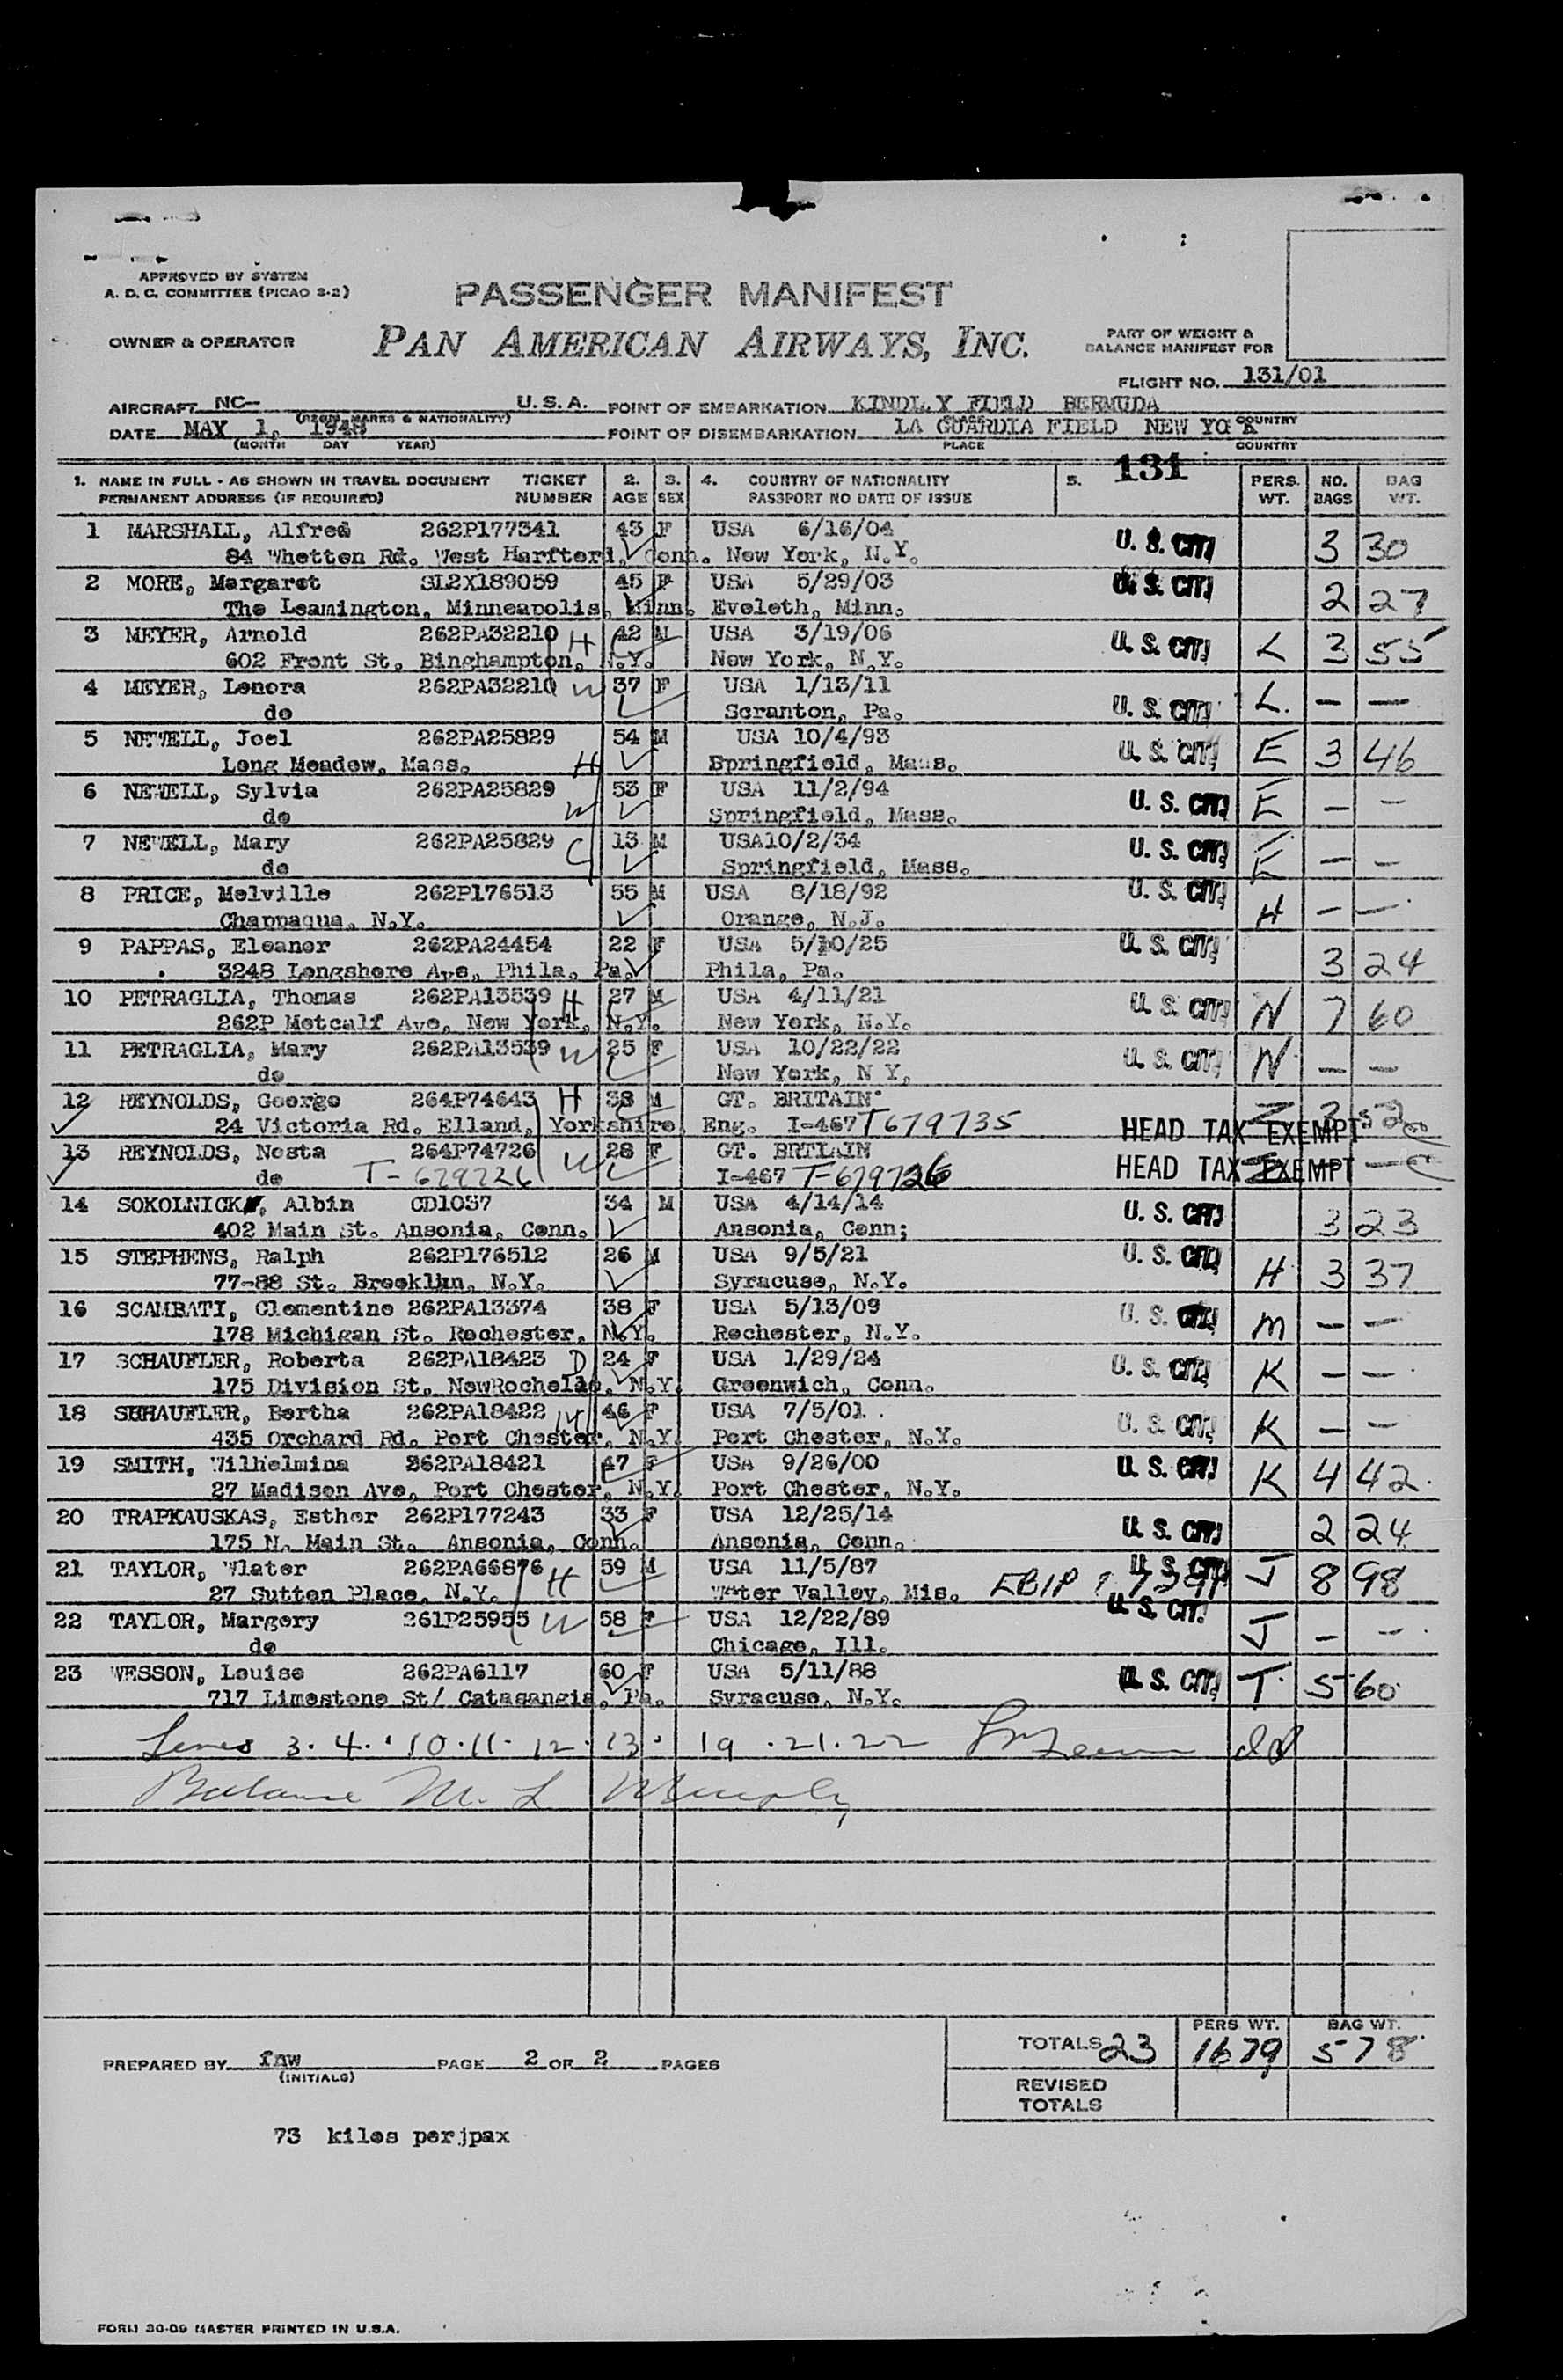 APPROVED BY SYSTEM
A. D. C. COMMITTEE (PICAO 3-2)
PASSENGER MANIFEST
OWNER & OPERATOR PAN AMERICAN AIRWAYS, INC. PART OF WEIGHT & BALANCE MANIFEST FOR
FLIGHT NO. 131/01
AIRCRAFT NC- U.S.A. POINT OF EMBARKATION KINDL Y FIELD BERMUDA
(REGN. MARKS & NATIONALITY) COUNTRY
DATE MAY 1, 1948 POINT OF DISEMBARKATION LA GUARDIA FIELD NEW YO K
(MONTH DAY YEAR) PLACE COUNTRY
131
1. NAME IN FULL - AS SHOWN IN TRAVEL DOCUMENT TICKET 2. 3. 4. COUNTRY OF NATIONALITY 5. PERS. NO. BAG
PERMANENT ADDRESS (IF REQUIRED) NUMBER AGE SEX PASSPORT NO DATE OF ISSUE WT. BAGS WT.
1 MARSHALL, Alfred 262P177341 43 F USA 6/16/04 U. S. CIT. 3 30
84 Whetten Rd. West Harfterd, Conn. New York, N.Y.
2 MORE, Margaret SL2X189059 45 F USA 5/29/03 U. S. CIT. 2 27
The Leamington, Minneapolis, Minn. Eveleth, Minn.
3 MEYER, Arnold 262PA32210 H 42 M USA 3/19/06 U. S. CIT. L 3 55
602 Front St. Binghampton, N.Y. New York, N.Y.
4 MEYER, Lenora 262PA32210 W 37 F USA 1/13/11 U. S. CIT. L. — —
do Scranton, Pa.
5 NEWELL, Joel 262PA25829 54 M USA 10/4/93 U. S. CIT. E 3 46
Long Meadow, Mass. H Springfield, Mass.
6 NEWELL, Sylvia 262PA25829 53 F USA 11/2/94 U. S. CIT. E — —
do W Springfield, Mass.
7 NEWELL, Mary 262PA25829 C 13 M USA10/2/34 U. S. CIT. E — —
do Springfield, Mass.
8 PRICE, Melville 262P176513 55 M USA 8/18/92 U. S. CIT. H — —
Chappaqua, N.Y. Orange, N.J.
9 PAPPAS, Eleanor 262PA24454 22 F USA 5/10/25 U. S. CIT. 3 24
3248 Longshore Ave, Phila, Pa. Phila, Pa.
10 PETRAGLIA, Thomas 262PA13539 H 27 M USA 4/11/21 U. S. CIT. N 7 60
262P Metcalf Ave, New York, N.Y. New York, N.Y.
11 PETRAGLIA, Mary 262PA13539 W 25 F USA 10/22/22 U. S. CIT. N — —
do New York, N Y,
12 REYNOLDS, George 264P74643 H 38 M GT. BRITAIN
24 Victoria Rd. Elland, Yorkshire, Eng. I-467 T679735 HEAD TAX EXEMPT
13 REYNOLDS, Nesta 264P74726 W 28 F GT. BRTIAIN HEAD TAX EXEMPT
do T-679726 I-467 T-679726
14 SOKOLNICK, Albin CD1037 34 M USA 4/14/14 U. S. CIT. 3 23
402 Main St. Ansonia, Conn. Ansonia, Conn;
15 STEPHENS, Ralph 262P176512 26 M USA 9/5/21 U. S. CIT. H 3 37
77-88 St. Brooklun, N.Y. Syracuse, N.Y.
16 SCAMBATI, Clementine 262PA13374 38 F USA 5/13/09 U. S. CIT. M — —
178 Michigan St. Rochester, N.Y. Rochester, N.Y.
17 SCHAUFLER, Roberta 262PA18423 D 24 F USA 1/29/24 U. S. CIT. K — —
175 Division St. NewRochelle, N.Y. Greenwich, Conn.
18 SHHAUFLER, Bertha 262PA18422 M 46 F USA 7/5/01 U. S. CIT. K — —
435 Orchard Rd. Port Chester, N.Y. Port Chester, N.Y.
19 SMITH, Wilhelmina 262PA18421 47 F USA 9/26/00 U. S. CIT. K 4 42
27 Madison Ave, Port Chester, N.Y. Port Chester, N.Y.
20 TRAPKAUSKAS, Esther 262P177243 33 F USA 12/25/14 U. S. CIT. 2 24
175 N. Main St. Ansonia, Conn. Ansonia, Conn.
21 TAYLOR, Wlater 262PA66876 H 59 M USA 11/5/87 U. S. CIT. J 8 98
27 Sutton Place, N.Y. Water Valley, Mis.
22 TAYLOR, Margery 261P25955 W 58 F USA 12/22/89 U. S. CIT. J — —
do Chicago, Ill.
23 WESSON, Louise 262PA6117 60 F USA 5/11/88 U. S. CIT. T. 5 60
717 Limestone St/ Catasangia, Pa. Syracuse, N.Y.
Lines 3. 4. 10. 11. 12. 13. 19. 21. 22
Balance M. L Murphy
PERS. WT. BAG WT.
TOTALS 23 1679 578
PREPARED BY fnw PAGE 2 OF 2 PAGES
(INITIALS)
REVISED TOTALS
73 kilos perjpax
FORM 30-09 MASTER PRINTED IN U.S.A.